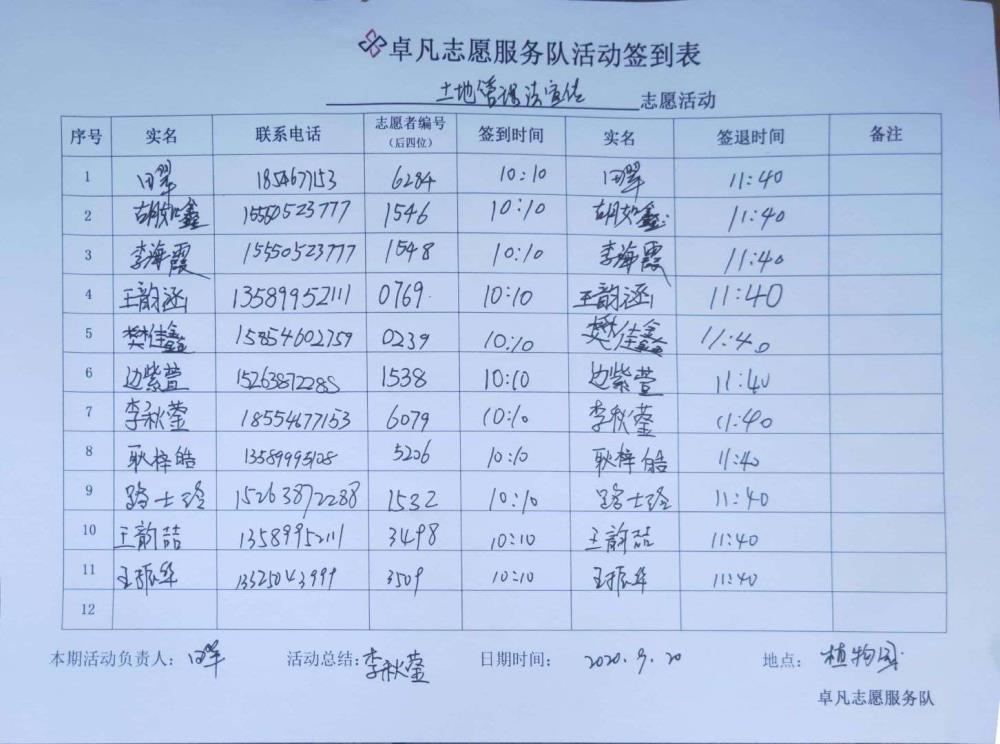 卓凡志愿服务队活动签到表
土地管理法宣传 志愿活动
序号 实名 联系电话 志愿者编号（后四位） 签到时间 实名 签退时间 备注
1 田翠 185467153 6284 10:10 田翠 11:40
2 胡如鑫 15550523777 1546 10:10 胡如鑫 11:40
3 李海霞 15550523777 1548 10:10 李海霞 11:40
4 王韵涵 13589952111 0769 10:10 王韵涵 11:40
5 樊佳鑫 15854602759 0239 10:10 樊佳鑫 11:40
6 边紫萱 15263872288 1538 10:10 边紫萱 11:40
7 李秋莹 18554677153 6079 10:10 李秋莹 11:40
8 耿梓皓 13589995108 5206 10:10 耿梓皓 11:40
9 路士玲 15263872288 1532 10:10 路士玲 11:40
10 王韵喆 13589952111 3498 10:10 王韵喆 11:40
11 王振华 13325043999 3509 10:10 王振华 11:40
12
本期活动负责人：田翠 活动总结：李秋莹 日期时间： 2020.9.20 地点： 植物园
卓凡志愿服务队